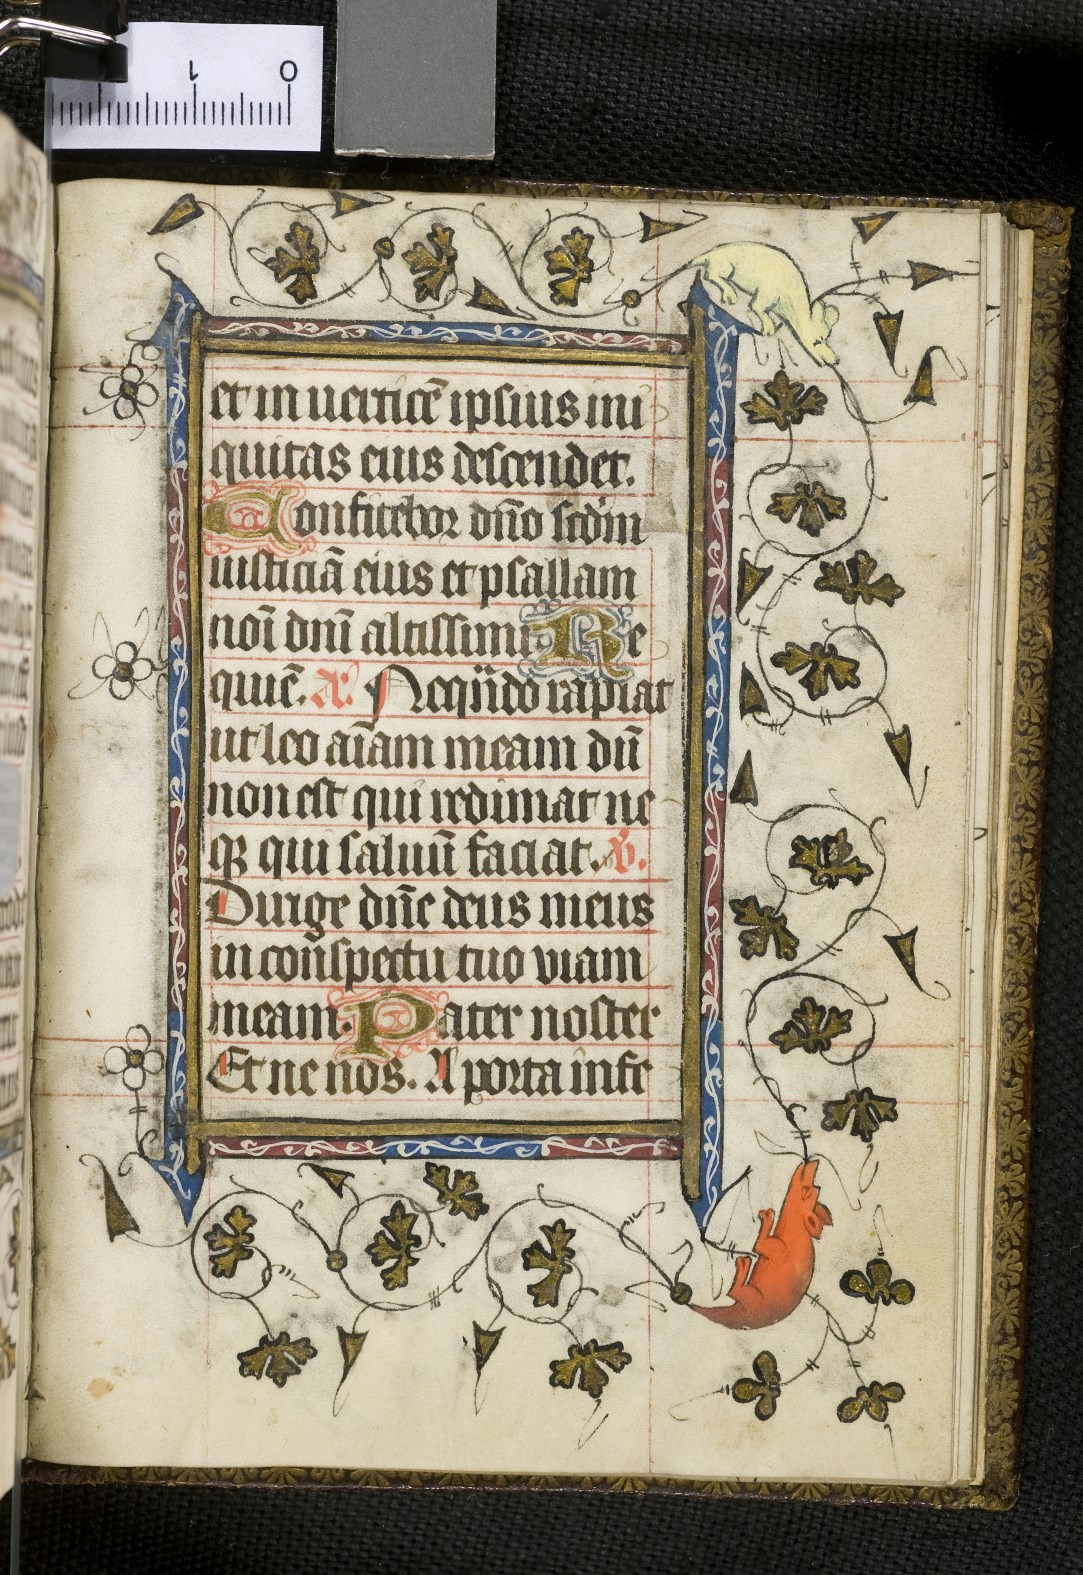 1 0
et in uerticē ipsius ini
quitas eius descendet.
Confitebor dn̄o scd̄m
iusticiā eius et psallam
noī dn̄i altissimi. Re
quiē. A᷒. Nequn̄do rapiat
ut leo aīam meam dū
non est qui redimat ne
qꝫ qui saluū faciat. V̕.
Dirige dn̄e deus meus
in conspectu tuo viam
meam. Pater noster
Et ne nos. A porta infe